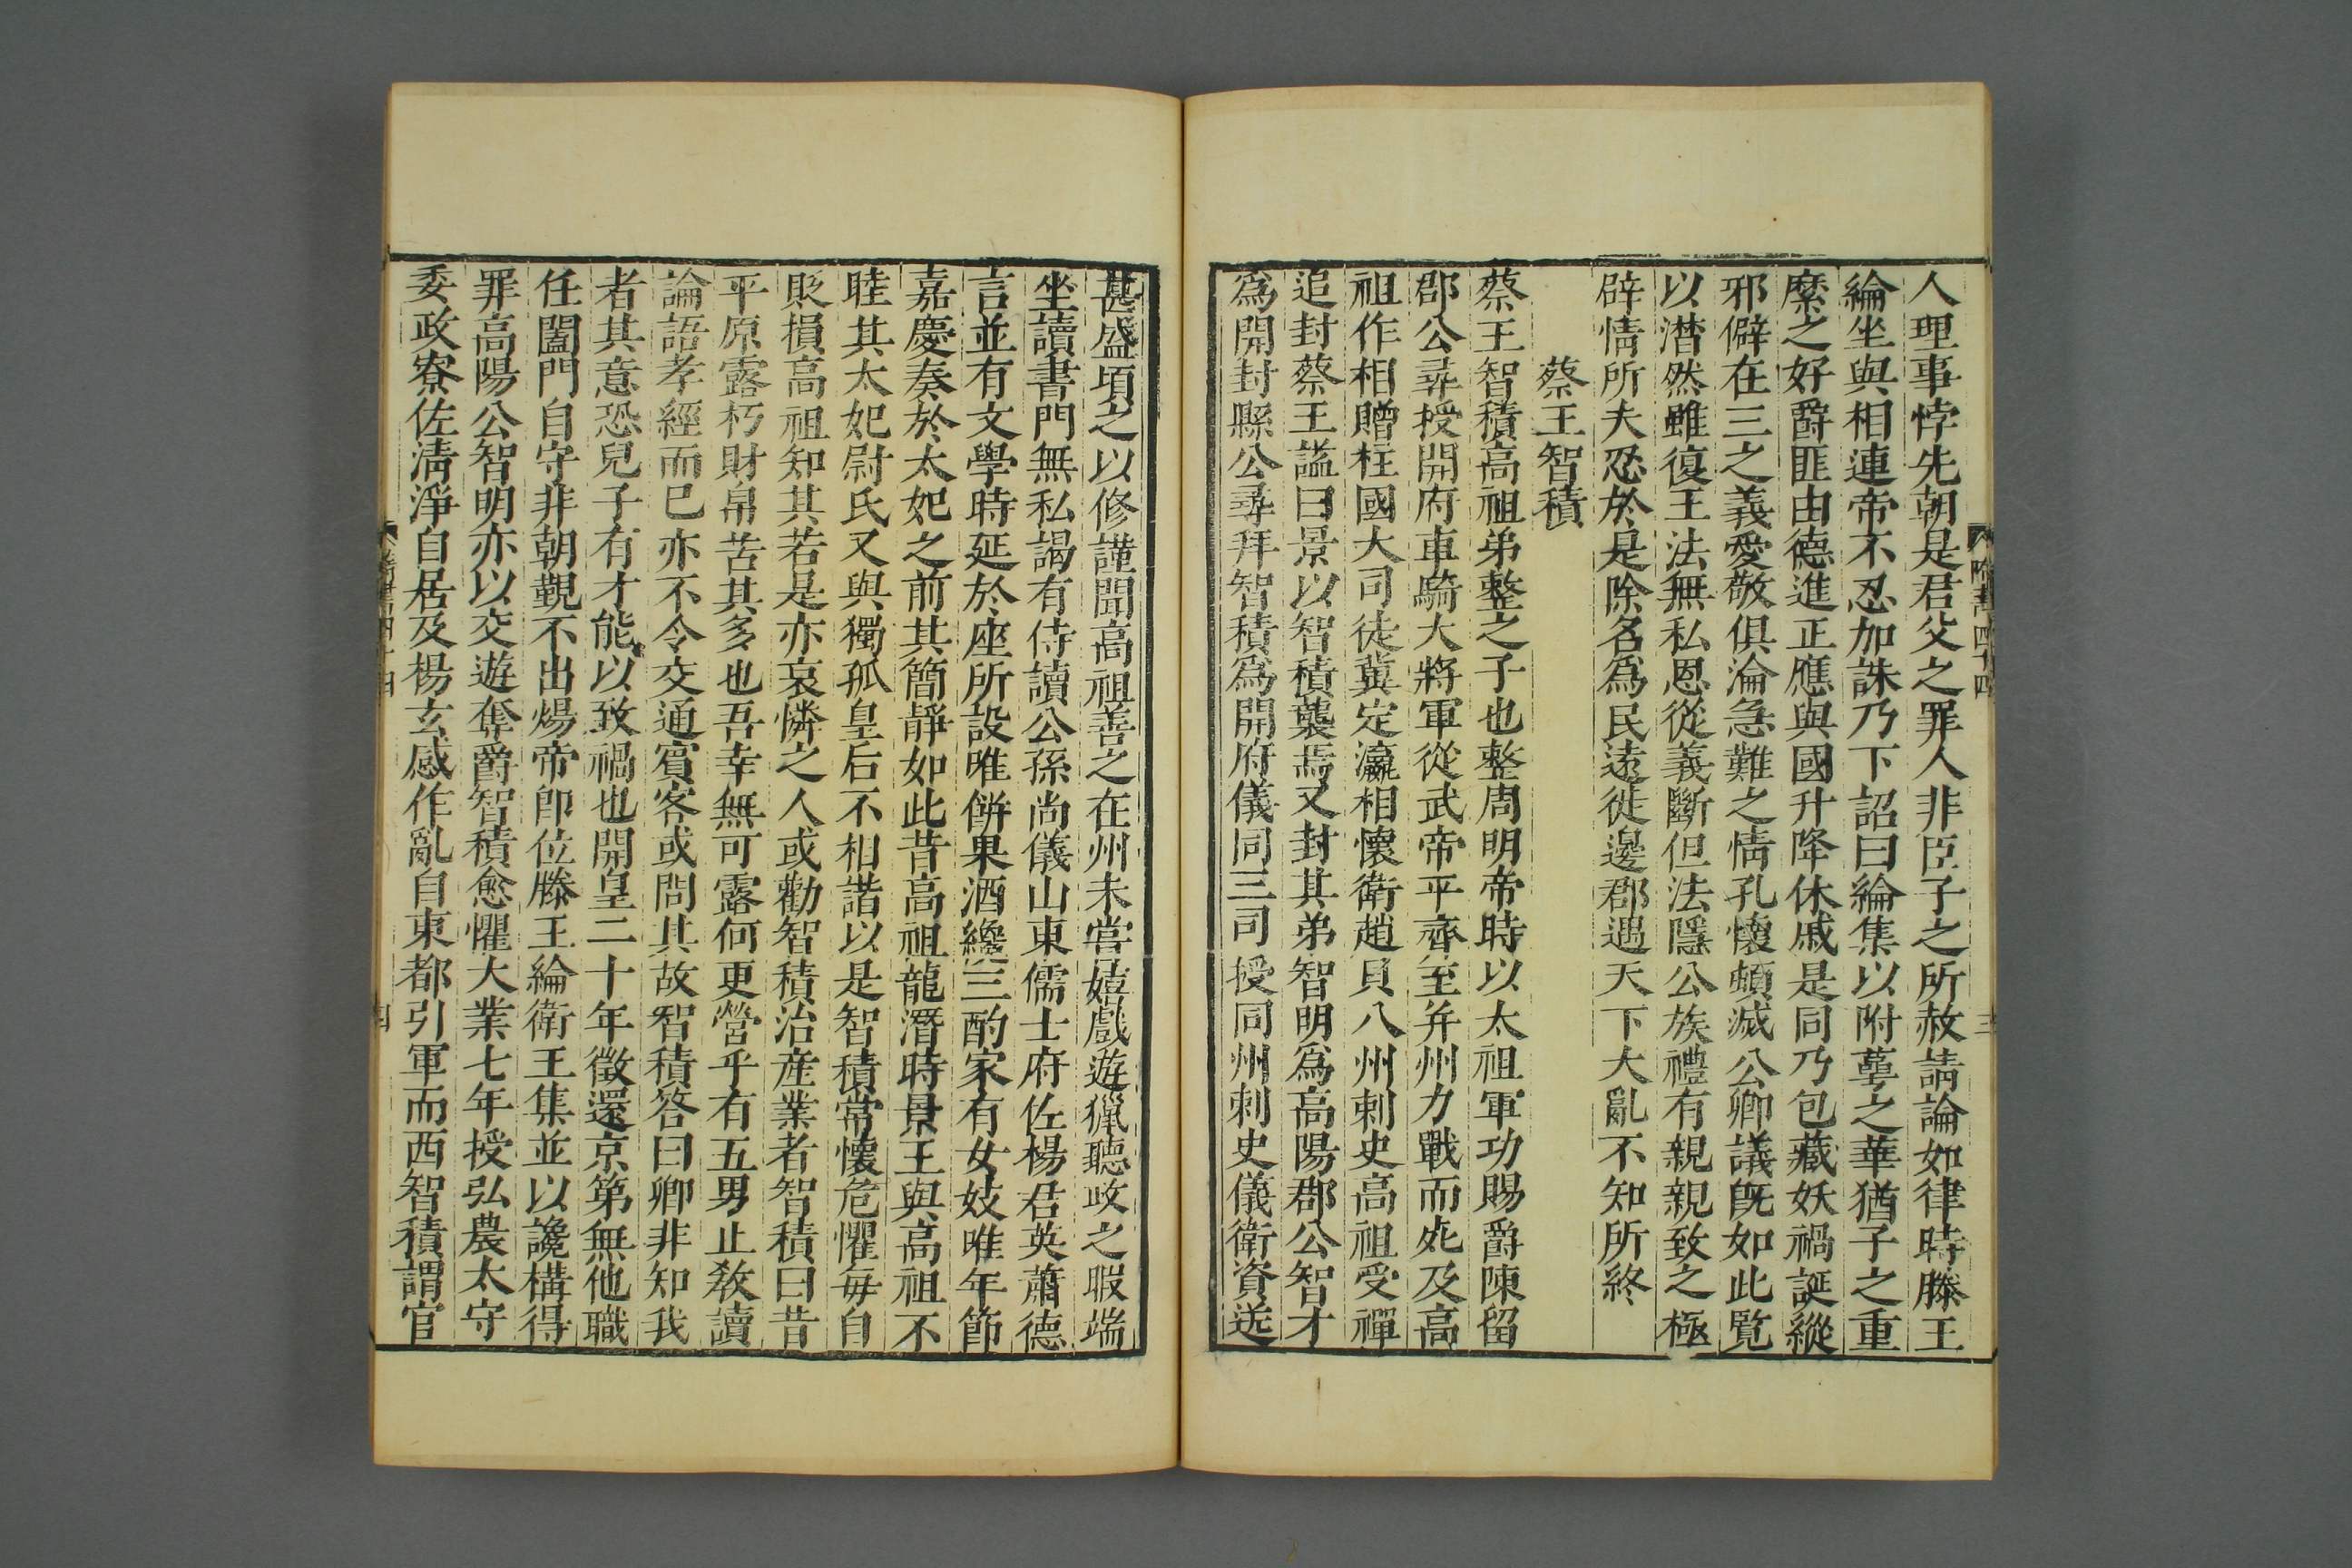 人理事悖先朝是君父之罪人非臣子之所赦請論如律時滕王
綸坐與相連帝不忍加誅乃下詔曰綸集以附萼之華猶子之重
縻之好爵匪由德進正應與國升降休戚是同乃包藏妖禍誕縱
邪僻在三之義愛敬俱淪急難之情孔懷頓滅公卿議既如此覽
以潸然雖復王法無私恩從義斷但法隱公族禮有親親致之極
辟情所夫忍於是除名爲民遠徙邊郡遇天下大亂不知所終
蔡王智積
蔡王智積高祖弟整之子也整周明帝時以太祖軍功賜爵陳留
郡公尋授開府車騎大將軍從武帝平齊至并州力戰而死及高
祖作相贈柱國大司徒冀定瀛相懷衛趙貝八州刺史高祖受禪
追封蔡王謚曰景以智積襲焉又封其弟智明爲高陽郡公智才
爲開封縣公尋拜智積爲開府儀同三司授同州刺史儀衛資送
甚盛頃之以修謹聞高祖善之在州未嘗嬉戲遊獵聽政之暇端
坐讀書門無私謁有侍讀公孫尚儀山東儒士府佐楊君英蕭德
言並有文學時延於座所設唯餅果酒纔三酌家有女妓唯年節
嘉慶奏於太妃之前其簡靜如此昔高祖龍潛時景王與高祖不
睦其太妃尉氏又與獨孤皇后不相諧以是智積常懷危懼每自
貶損高祖知其若是亦哀憐之人或勸智積治產業者智積曰昔
平原露朽財帛苦其多也吾幸無可露何更營乎有五男止教讀
論語孝經而已亦不令交通賓客或問其故智積答曰卿非知我
者其意恐兒子有才能以致禍也開皇二十年徵還京第無他職
任闔門自守非朝覲不出煬帝即位滕王綸衛王集並以讒構得
罪高陽公智明亦以交遊奪爵智積愈懼大業七年授弘農太守
委政寮佐清淨自居及楊玄感作亂自東都引軍而西智積謂官